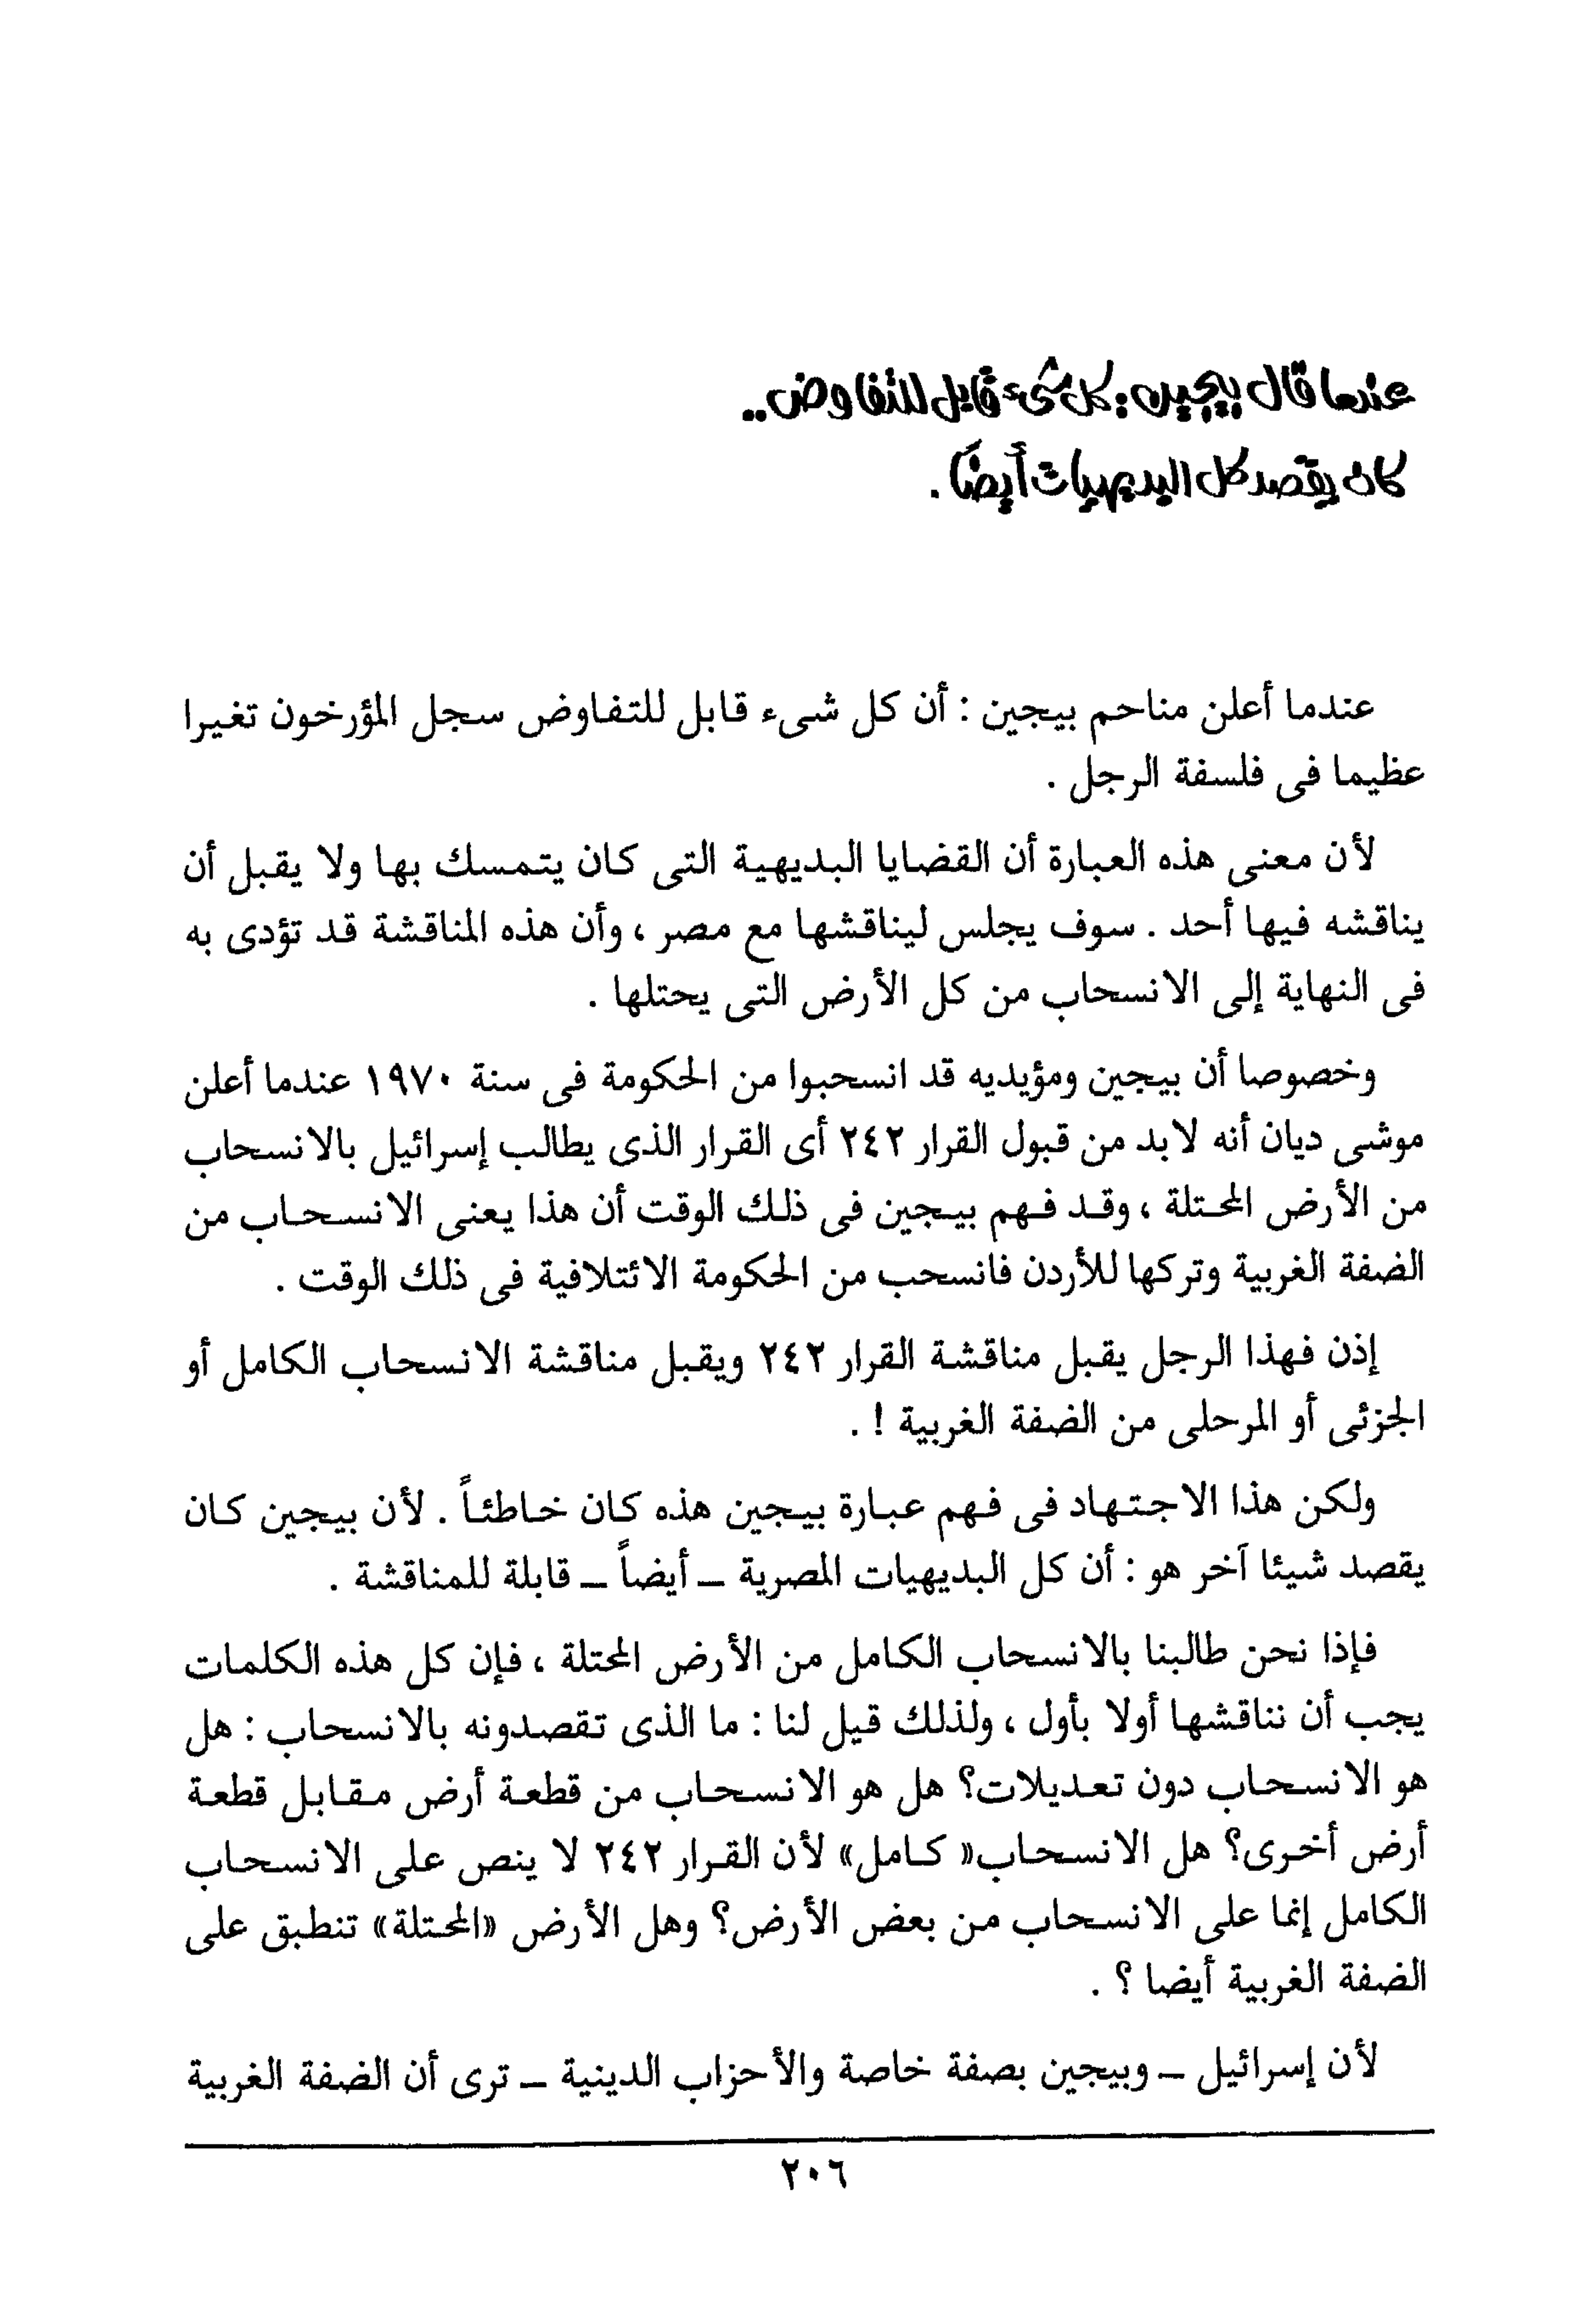 عندما قال بيجين : كل شىء قابل للتفاوض ..
كان يقصد كل البديهيات أيضًا .
عندما أعلن مناحم بيجين : أن كل شىء قابل للتفاوض سجل المؤرخون تغيرا
عظيما فى فلسفة الرجل .
لأن معنى هذه العبارة أن القضايا البديهية التى كان يتمسك بها ولا يقبل أن
يناقشه فيها أحد . سوف يجلس ليناقشها مع مصر ، وأن هذه المناقشة قد تؤدى به
فى النهاية إلى الانسحاب من كل الأرض التى يحتلها .
وخصوصا أن بيجين ومؤيديه قد انسحبوا من الحكومة فى سنة ١٩٧٠ عندما أعلن
موشى ديان أنه لابد من قبول القرار ٢٤٢ أى القرار الذى يطالب إسرائيل بالانسحاب
من الأرض المحتلة ، وقد فهم بيجين فى ذلك الوقت أن هذا يعنى الانسحاب من
الضفة الغربية وتركها للأردن فانسحب من الحكومة الائتلافية فى ذلك الوقت .
إذن فهذا الرجل يقبل مناقشة القرار ٢٤٢ ويقبل مناقشة الانسحاب الكامل أو
الجزئى أو المرحلى من الضفة الغربية ! .
ولكن هذا الاجتهاد فى فهم عبارة بيجين هذه كان خاطئاً . لأن بيجين كان
يقصد شيئا آخر هو : أن كل البديهيات المصرية ــ أيضاً ــ قابلة للمناقشة .
فإذا نحن طالبنا بالانسحاب الكامل من الأرض المحتلة ، فإن كل هذه الكلمات
يجب أن نناقشها أولا بأول ، ولذلك قيل لنا : ما الذى تقصدونه بالانسحاب : هل
هو الانسحاب دون تعديلات؟ هل هو الانسحاب من قطعة أرض مقابل قطعة
أرض أخرى؟ هل الانسحاب« كامل» لأن القرار ٢٤٢ لا ينص على الانسحاب
الكامل إنما على الانسحاب من بعض الأرض؟ وهل الأرض «المحتلة» تنطبق على
الضفة الغربية أيضا ؟ .
لأن إسرائيل ــ وبيجين بصفة خاصة والأحزاب الدينية ــ ترى أن الضفة الغربية
٢٠٦